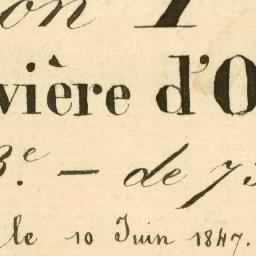 on 1
vière d'O
3.e — de 73
le 10 Juin 1847.